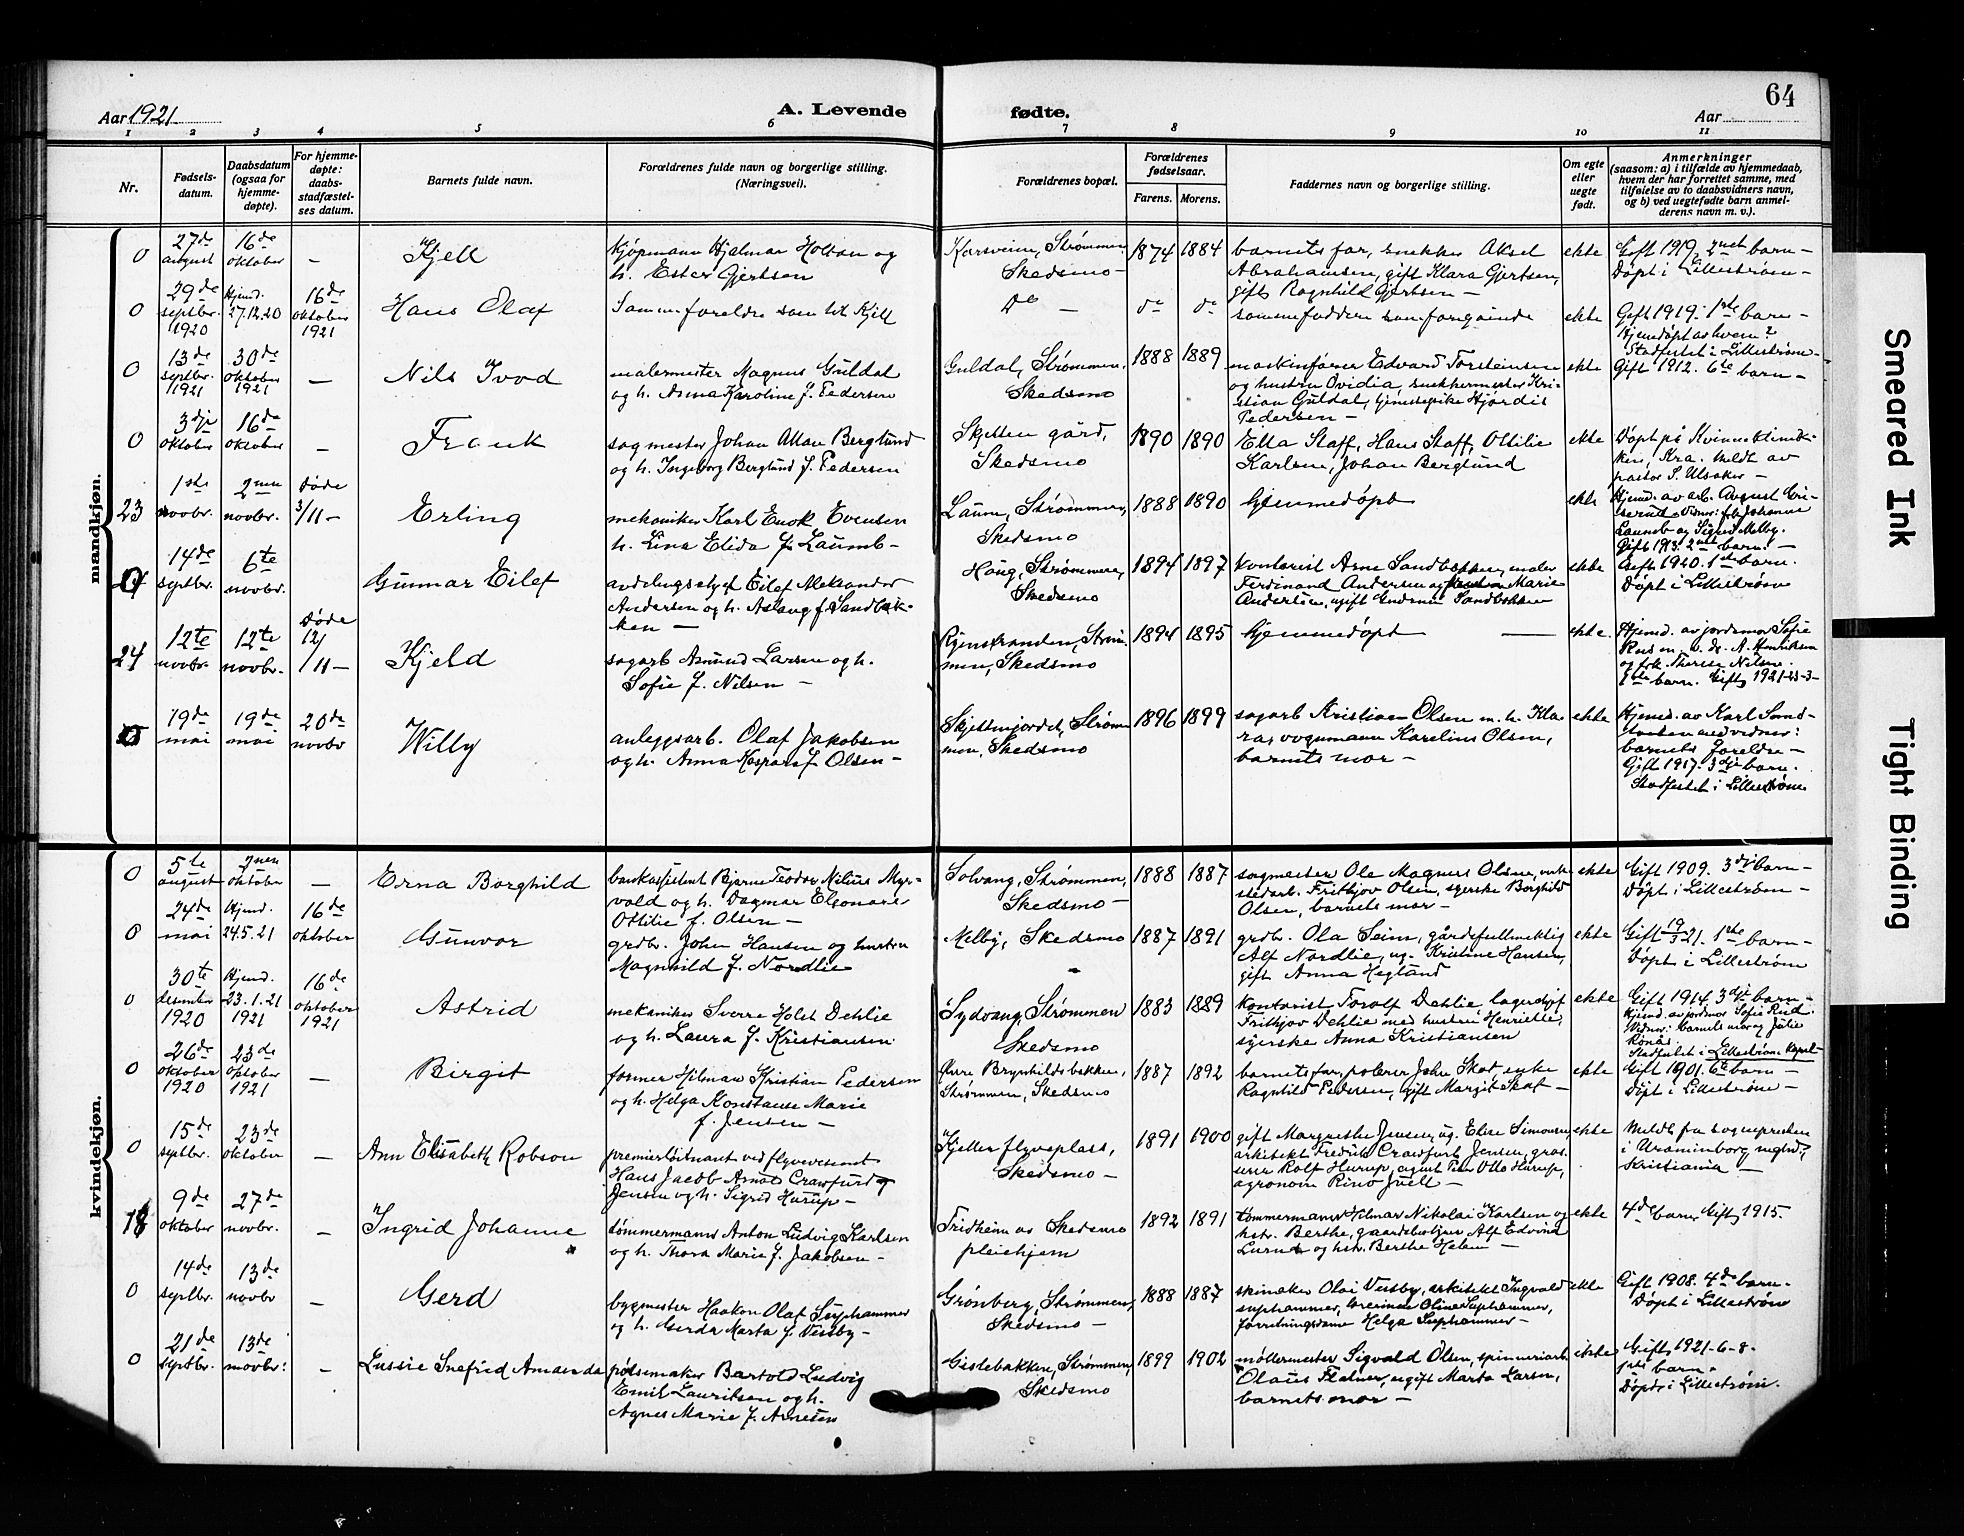 64
Aar 1921
A. Levende
fødte.
Aar
1 2 3 4 5 6 7 8 9 10 11
Nr.
Fødsels-
datum.
Daabsdatum
(ogsaa for
hjemme-
døpte).
For hjemme-
døpte:
daabs-
stadfæstel-
ses datum.
Barnets fulde navn.
Forældrenes fulde navn og borgerlige stilling.
(Næringsvei).
Forældrenes bopæl.
Forældrenes
fødselsaar.
Farens. Morens.
Faddernes navn og borgerlige stilling.
Om egte
eller
uegte
født.
Anmerkninger
(saasom: a) i tilfælde av hjemmedaab,
hvem der har forrettet samme, med
tilføielse av to daabsvidners navn,
og b) ved uegtefødte barn anmel-
derens navn m. v.).
mandkjøn.
0
27de
august
16de
oktober
–
Kjell
kjøpmann Hjalmar Holtan og
h. Ester Gjertsen
Strømmen,
Skedsmo –
1874 1884
barnets far, snekker Aksel
Abrahamsen, gift Klara Gjertsen,
gift Ragnhild Gjertsen –
ekte
Gift 1919, 2net barn –
Døpt i Lillestrøm –
0
29de
septbr.
1920
Hjemd.
27.12.20
16de
oktober
1921
Hans Olaf
Samme foreldre som til Kjell
do –
do do
samme faddere som foregående
ekte
Gift 1919. 1ste barn –
Hjemdøpt av hvem?
Stadfestet i Lillestrøm –
0
13de
septbr.
1921
30de
oktober
1921
–
Nils Ivod
malermester Magnus Guldal
og h. Anna Karoline f. Pedersen
Guldal, Strømmen,
Skedsmo
1888 1889
maskinfører Edvard Torsteinsen
og hustru Ovidia, snekkermester Kri-
stian Guldal, tjenestepike Hjørdis
Pedersen –
ekte
Gift 1912. 6te barn –
0
3dje
oktober
16de
oktober
–
Frank
sagmester Johan Allan Berglund
og h. Ingeborg Berglund f. Pedersen
Skjetten gård,
Skedsmo
1890 1890
Ella Staff, Hans Staff, Ottilie
Karlsen, Johan Berglund
ekte
Døpt på Kvinneklinik-
ken, Kra. Meldt av
pastor S. Ulsaker –
23
1ste
novbr.
2nen
novbr.
døde
3/11 –
Erling
mekaniker Karl Enok Evensen
h. Lina Elida f. Laumb –
Strømmen,
Skedsmo
1888 1890
hjemmedøpt
ekte
Hjemd. av arb. August
Vidner: frk Johanne
Laumb og Sigrid Melby.
Gift 1913. 2net barn. –
14de
septbr.
6te
novbr.
Gunnar Eilef
avdelingschef Eilef Aleksander
Andersen og h. Aslaug f. Sandbak-
ken –
Haug, Strømmen,
Skedsmo
1894 1897
kontorist Arne Sandbakken, maler
Ferdinand Andersen og Marie
Andersen, ugift Gudrun Sandbakken
ekte
Gift 1920. 1ste barn.
Døpt i Lillestrøm
24
12te
novbr.
12te
novbr.
døde
12/
/11 –
Kjeld
sagarb Asmund Larsen og h.
Sofie f. Nilsen –
Strøm-
men, Skedsmo
1894 1895
hjemmedøpt –
ekte.
Hjemd. av jordmor Sofie
A. Henriksen
og frk. Therese Nilsen.
1ste barn. Gift 1921-23-3-
19de
mai
19de
mai
20de
novbr
Willy
anleggsarb. Olaf Jakobsen
og h. Anna Kaspara f. Olsen –
Skjettenjordet, Strøm-
men, Skedsmo
1896 1899
sagarb Kristian Olsen m. h. Kla-
ra, vognmann Karelius Olsen,
barnets mor –
ekte
Hjemd. av Karl Sand-
med vidner:
barnets foreldre –
Gift 1917. 3dje barn.
Stadfestet i Lillestrøm
kvindekjøn.
0
5te
august
2nen
oktober
–
Erna Borghild
bankassistent Bjarne Teodor Nilius Myr-
vold og h. Dagmar Eleonare
Ottilie f. Olsen –
Solvang, Strømmen,
Skedsmo –
1888 1887
sagmester Ole Magnus Olsen, verk-
stedarb. Frithjov Olsen, syerske Borghild
Olsen, barnets mor –
ekte
Gift 1909. 3dje barn –
Døpt i Lillestrøm –
0
24de
mai
Hjemd.
24.5.21
16de
oktober
Gunvor
grdbr. John Hansen og hustru
Magnhild f. Nordlie
Melby, Skedsmo
1887 1891
grdbr. Ola Seim, gårdsfullmektig
Alf Nordlie, ug. Kristine Hansen,
gift Anna Hegland
ekte
Gift 19/3 21. 1ste barn –
Døpt i Lillestrøm
0
30te
desember
1920
Hjemd.
23.1.21
1921
16de
oktober
1921
Astrid
mekaniker Sverre Holst Dehlie
og h. Laura f. Kristiansen
Sydvang, Strømmen
Skedsmo
1883 1889
kontorist Torolf Dehlie, lagerchef
Frithjov Dehlie med hustru Henriette,
syerske Anna Kristiansen
ekte
Gift 1914. 3dje barn –
Hjemd. av jordmor Sofie Rud.
Vidner: barnets mor og Julie
Rønås.
Stadfestet i Lillestrøm kapel –
0
26de
oktober
1920
23de
oktober
1921
–
Birgit
former Hilmar Kristian Pedersen
og h. Helga Konstanse Marie
f. Jensen –
Brynhildsbakken,
Strømmen, Skedsmo
1887 1892
barnets far, polerer John Skot, enke
Ragnhild Pedersen, gift Margit Skot –
ekte
Gift 1901. 6te barn –
Døpt i Lillestrøm –
0
15de
septbr.
23de
oktober
–
Ann Elisabeth Robson
premierløitnant ved flyvevesenet
Hans Jacob Arnot Crawfurd
Jensen og h. Sigrid Hurup –
Kjeller flyveplass,
Skedsmo –
1891 1900
gift Margrethe Jensen, ug. Elise Simonsen,
arkitekt Fredrik Crawfurd Jensen, gros-
serer Rolf Hurup, agent Per Otto Hurup,
agronom Rino Juell –
ekte
Meldt fra sognepresten
i Uranienborg meghd.,
Kristiania –
18
9de
oktober
27de
novbr.
–
Ingrid Johanne
tømmermann Anton Ludvig Karlsen
og h. Thora Marie f. Jakobsen –
Fridheim av Skedsmo
pleiehjem
1892 1891
tømmermann Hilmar Nikolai Karlsen og
hstr. Berthe, gaardsbestyrer Alf Edvind
Lund og hstr. Berthe Helene –
ekte
4de barn Gift 1915.
0
14de
septbr.
13de
novbr
–
Gerd
bygmester Haakon Olaf Syphammer
og h. Gerda Marta f. Vessby –
Grønberg, Strømmen,
Skedsmo –
1888 1887
skinaker Olai Vessby, arkitekt Ingvald
Syphammer, Oline Syphammer,
forretningsdame Helga Syphammer –
ekte
Gift 1908. 4de barn –
Døpt i Lillestrøm
0
21de
septbr.
13de
novbr.
–
Lussie Snefrid Amanda
pølsemaker Bartold Ludvig
Emil Lauritsen og h.
Agnes Marie f. Arnesen
Gistebakken, Strømmen,
Skedsmo
1899 1902
møllermester Sigvald Olsen, spinneriarb
Olaus Flatner, ugift Marta Larsen,
barnets mor –
ekte
Gift 1921-6-8-
1ste barn –
Døpt i Lillestrøm.
Smeared Ink
Tight Binding